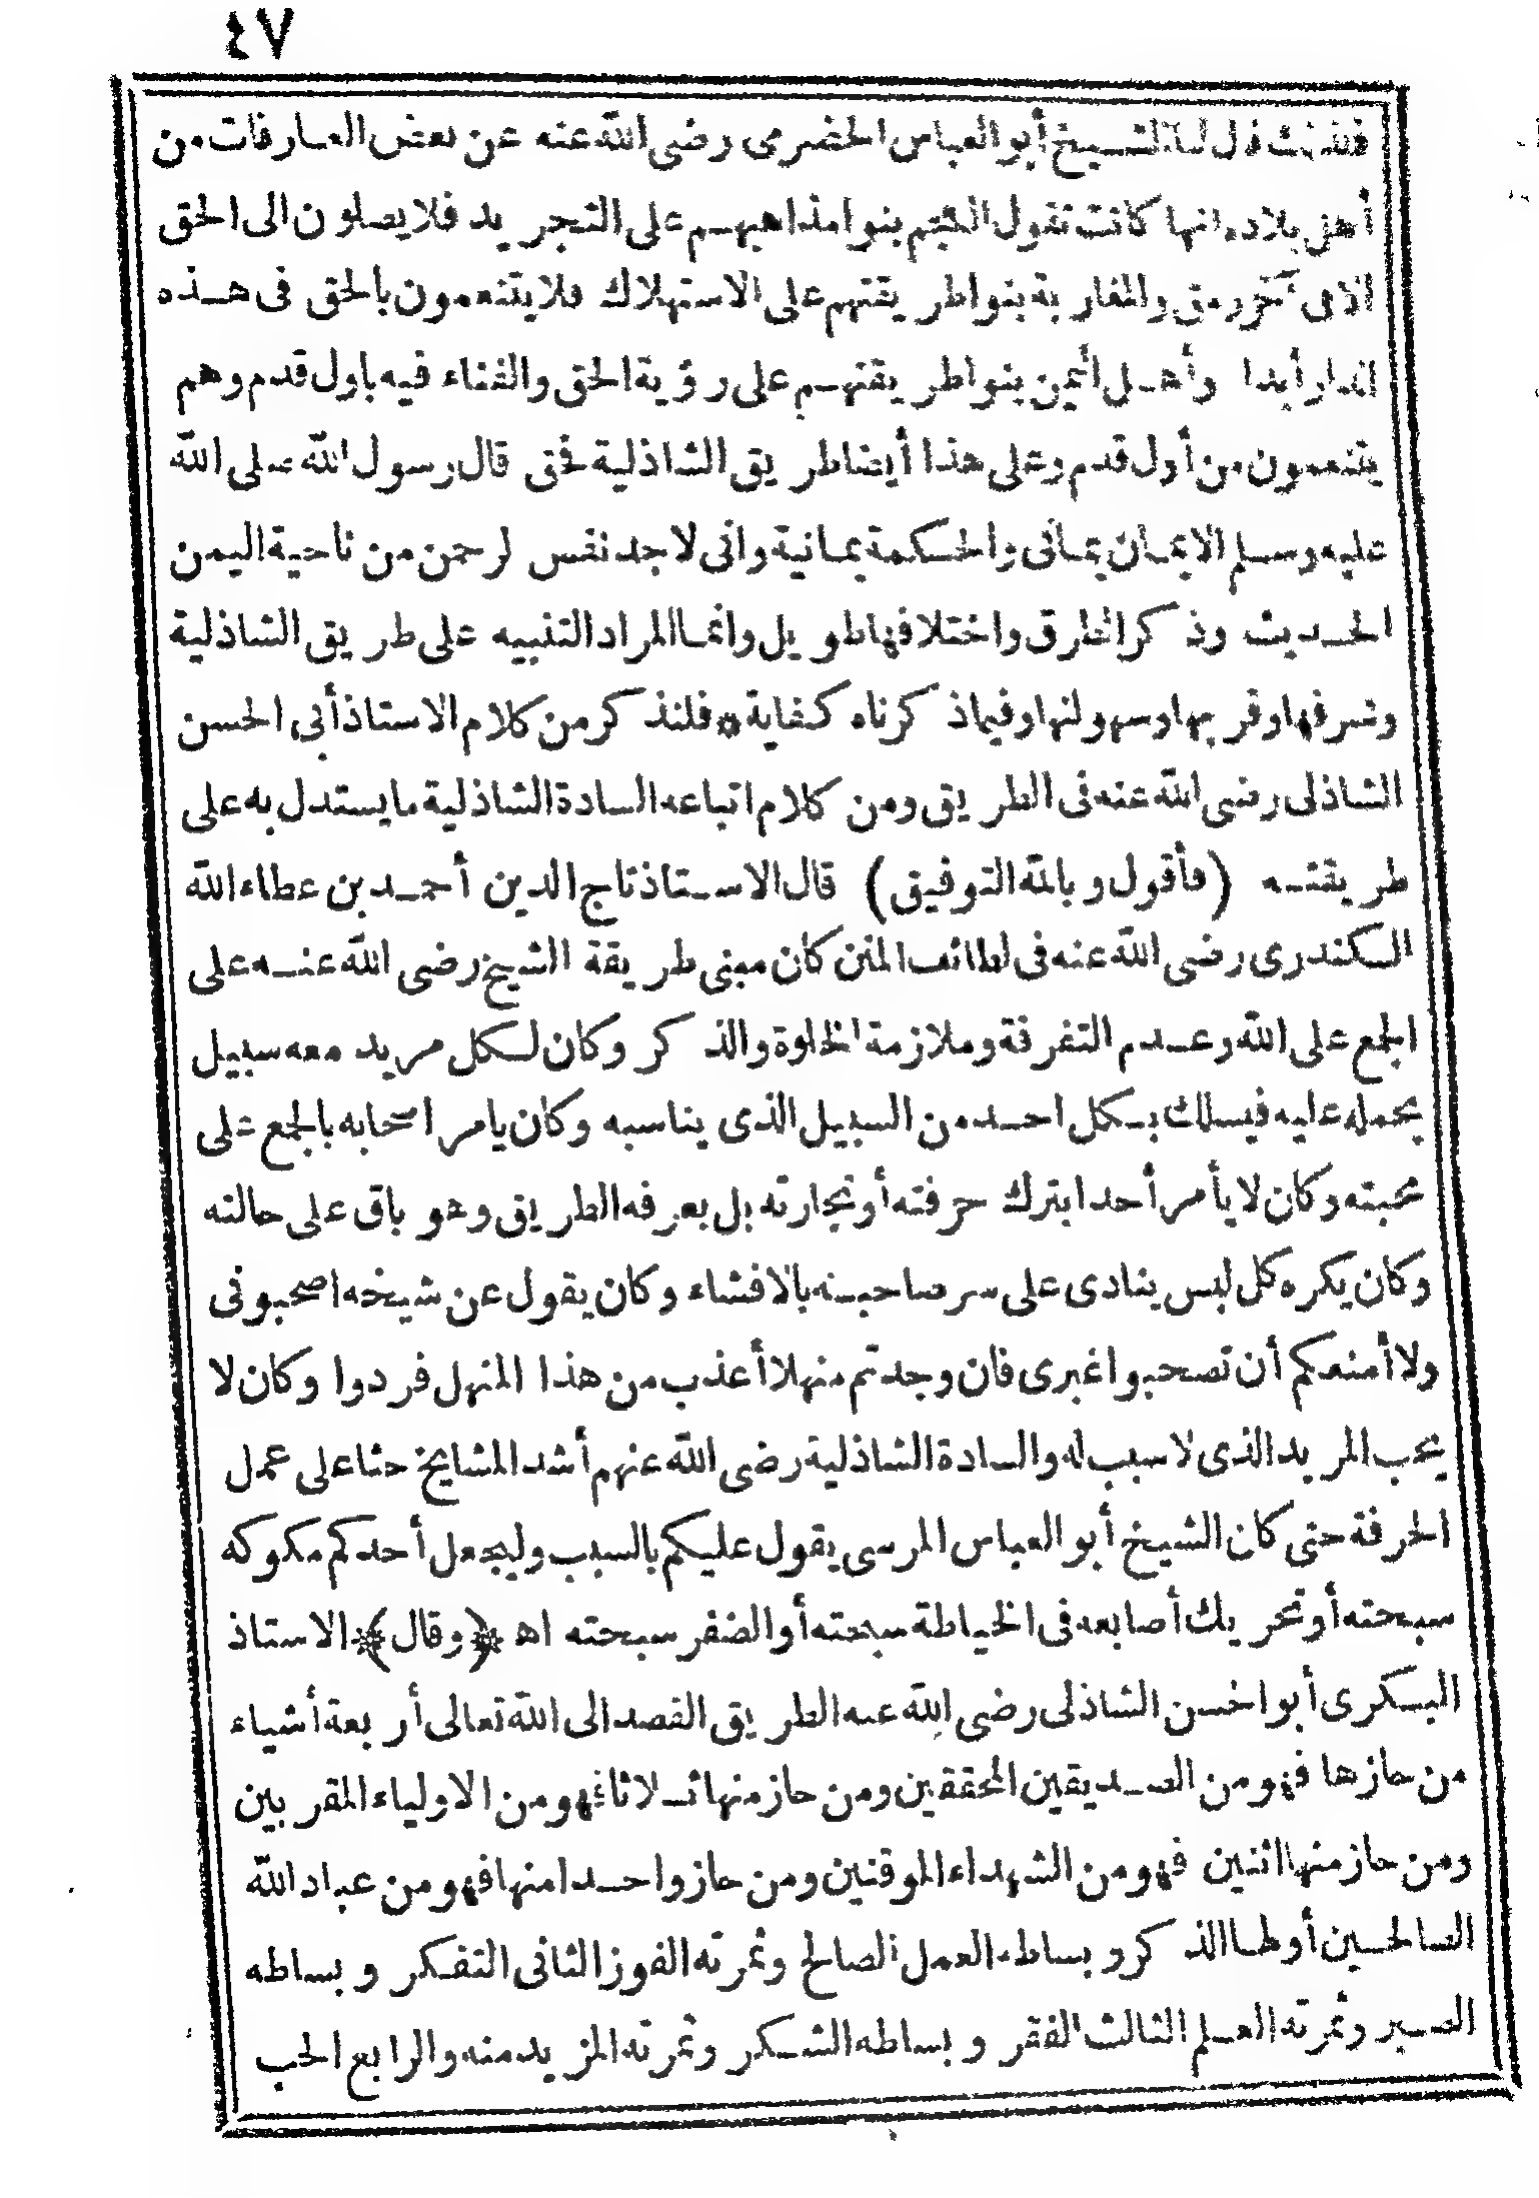 ٤٧
فلذلك قال لنا الشيخ أبو العباس الحضرمى رضى الله عنه عن بعض العارفات من
أهل بلاده انها كانت تقول بنوا مذاهبهم على التجريد فلا يصلون الى الحق
والمغاربة بنوا طريقتهم على الاستهلاك فلا يتنعمون بالحق فى هذه
الدار أبدا وأهل اليمن بنوا طريقتهم على رؤية الحق والفناء فيه باول قدم وهم
يتنعمون من أول قدم وعلى هذا أيضا طريق الشاذلية فحق قال رسول الله صلى الله
عليه وسلم الايمان يمانى والحكمة يمانية وانى لاجد نفس الرحمن من ناحية اليمن
الحديث وذكر الطرق واختلافها طويل وانما المراد التنبيه على طريق الشاذلية
وشرفها وقربها وسهولتها وفيما ذكرناه كفاية * فلنذكر من كلام الاستاذ أبى الحسن
الشاذلى رضى الله عنه فى الطريق ومن كلام اتباعه السادة الشاذلية ما يستدل به على
طريقته (فأقول وبالله التوفيق) قال الاستاذ تاج الدين أحمد بن عطاء الله
السكندرى رضى الله عنه فى لطائف المنن كان مبنى طريقة الشيخ رضى الله عنه على
الجمع على الله وعدم التفرقة وملازمة الخلوة والذكر وكان لكل مريد معه سبيل
يحمله عليه فيسلك بكل احد من السبيل الذى يناسبه وكان يامر اصحابه بالجمع على
محبته وكان لا يأمر أحدا بترك حرفته أو تجارته بل يعرفه الطريق وهو باق على حالته
وكان يكره كل لبس ينادى على سر صاحبه بالافشاء وكان يقول عن شيخه اصحبونى
ولا أمنعكم أن تصحبوا غيرى فان وجدتم منهلا أعذب من هذا المنهل فردوا وكان لا
يحب المريد الذى لا سبب له والسادة الشاذلية رضى الله عنهم أشد المشايخ حثا على عمل
الحرفة حتى كان الشيخ أبو العباس المرسى يقول عليكم بالسبب وليجعل أحدكم مكوكه
سبحته أو تحريك أصابعه فى الخياطة سبحته أو الضفر سبحته اه ﴿وقال﴾ الاستاذ
البكرى أبو الحسن الشاذلى رضى الله عنه الطريق القصد الى الله تعالى أربعة أشياء
من حازها فهو من الصديقين المحققين ومن حاز منها ثلاثا فهو من الاولياء المقربين
ومن حاز منها اثنين فهو من الشهداء الموقنين ومن حاز واحدا منها فهو من عباد الله
الصالحين أولها الذكر وبساطه العمل الصالح وثمرته الفوز الثانى التفكر وبساطه
الصبر وثمرته العلم الثالث الفقر وبساطه الشكر وثمرته المزيد منه والرابع الحب